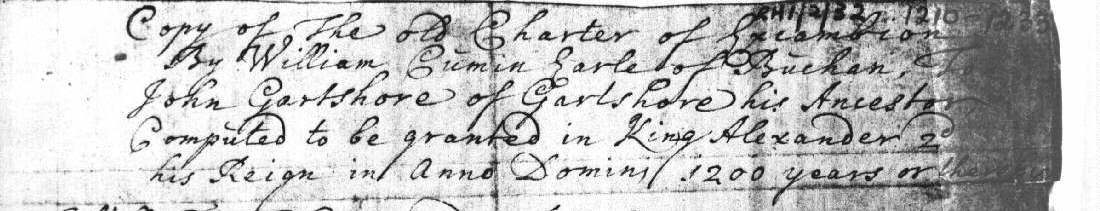 RH1/2/32 1210-1233
Copy of The old Charter of Excambion
By William Cumin Earle of Buchan, To
John Gartshore of Gartshore his Ancestor
Computed to be granted in King Alexander 2d
his Reign in Anno Domini 1200 years or